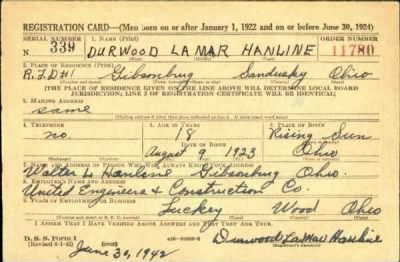 REGISTRATION CARD—(Men born on or after January 1, 1922 and on or before June 30, 1924)
SERIAL NUMBER 1. NAME (Print) ORDER NUMBER
N 339 DURWOOD LA MAR HANLINE 11780
(First) (Middle) (Last)
2. PLACE OF RESIDENCE (Print)
R.F.D #1 Gibsonburg Sandusky Ohio
(THE PLACE OF RESIDENCE GIVEN ON THE LINE ABOVE WILL DETERMINE LOCAL BOARD
JURISDICTION; LINE 2 OF REGISTRATION CERTIFICATE WILL BE IDENTICAL)
3. MAILING ADDRESS
same
4. TELEPHONE 5. AGE IN YEARS 6. PLACE OF BIRTH
no. 18 Rising Sun
DATE OF BIRTH
August 9 1923 Ohio
7. NAME AND ADDRESS OF PERSON WHO WILL ALWAYS KNOW YOUR ADDRESS
Walter L. Hanline Gibsonburg Ohio.
8. EMPLOYER'S NAME AND ADDRESS
United Engineers & Construction Co.
9. PLACE OF EMPLOYMENT OR BUSINESS
Luckey Wood Ohio
I AFFIRM THAT I HAVE VERIFIED ABOVE ANSWERS AND THAT THEY ARE TRUE.
D. S. S. Form 1
(Revised 6-1-42)
Durwood LaMar Hanline
June 30, 1942